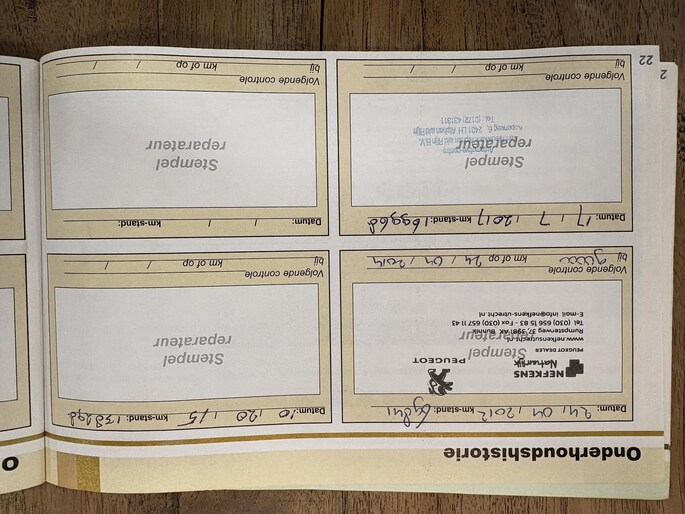 Onderhoudshistorie
O
Datum: 24 / 04 / 2012 km-stand:
NEFKENS
Natuurlijk
PEUGEOT
PEUGEOT DEALER
Stempel
reparateur
www.nefkensutrecht.nl
Rumpsterweg 37, 3981 AK Bunnik
Tel (030) 656 15 83 - Fax (030) 657 11 43
E-mail info@nefkens-utrecht.nl
Volgende controle
bij km of op 24 / 04 / 2014
Datum: 10 / 20 / 15 km-stand:
Stempel
reparateur
Volgende controle
bij km of op / /
Datum: 17 / 7 / 2017 km-stand: 169968
Stempel
reparateur
6, 2401 LH Alphen a/d Rijn
Tel.: (0172)
Volgende controle
bij km of op / /
Datum: / / km-stand:
Stempel
reparateur
Volgende controle
bij km of op / /
22
2